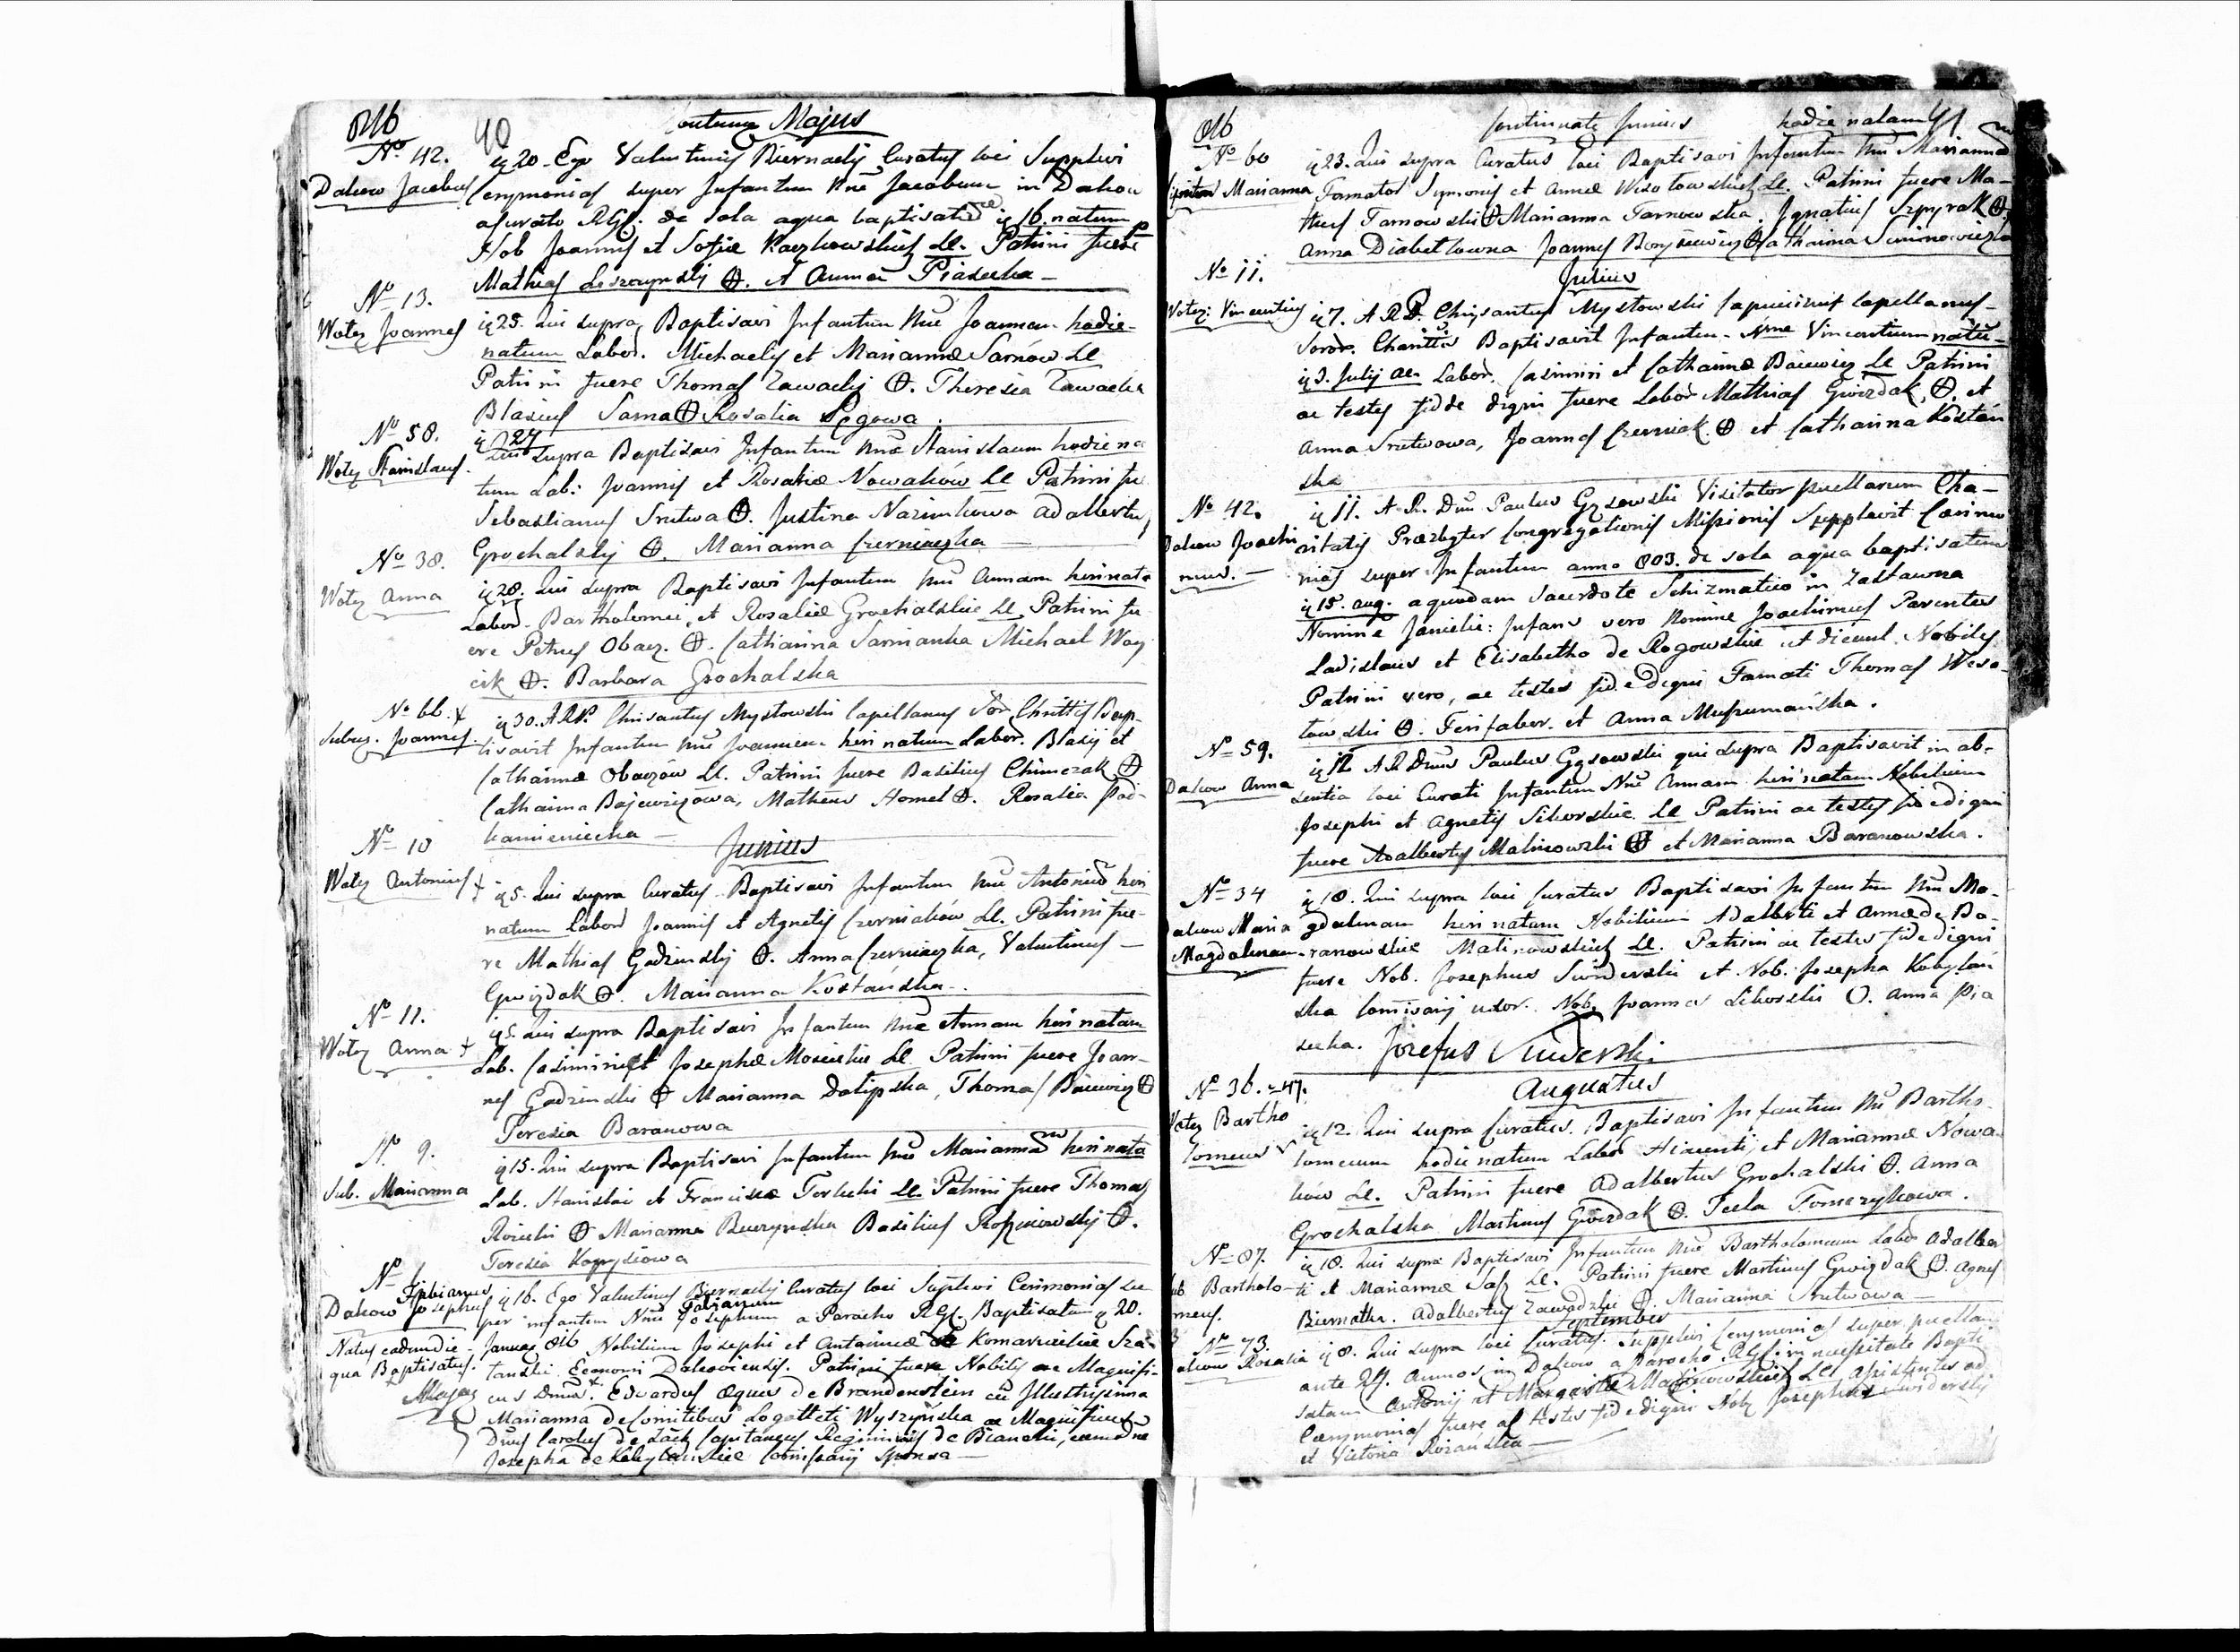 816
40
Continuat Majus
No 42.
Dakow Jacobus
ią 20. Ego Valentinus Biernacki Curatus loci Supplevi
Cerymonias super Infantem Nne Jacobum in Dakow
a Curato RGC. de sola aqua baptisatum ią 16. natum
Nob Joannis et Sofiæ Raczkowskich LC. Patrini fuere
Mathias Leszczynski et Anna Piasecka
No 13.
Wotez Joannes
ią 25. Qui supra Baptisavi Infantem Nne Joannem hodie
natum Labor. Michaelis et Mariannæ Sarnów LC
Patrini fuere Thomas Zawacki. Theresia Zawacka
Blasius Sarna Rosalia Rogowa.
No 58.
Wotez Stanislaus.
ią 27
Qui supra Baptisavi Infantem Nne Stanislaum hodie na
tum Lab: Joannis et Rosaliæ Nowaków LC Patrini fu
Sebastianus Srutwa. Justina Nazimkowa Adalbertus
Grochalski. Marianna Czerniaczka
No 38.
Wotez Anna
ią 28. Qui supra Baptisavi Infantem Nne Annam heri nata
Labor. Bartholomei, et Rosaliæ Grochalskie LC Patrini fu
ere Petrus Obacz. Catharina Sarnianka Michael Woy
cik. Barbara Grochalska
No 66.
Subuz. Joannes.
ią 30. A.R.P. Chrisantus Mystowski Capellanus Sor Chrittis Bap-
tisavit Infantem Nne Joannem heri natum Labor. Blasij et
Catharinæ Obaczów LC. Patrini fuere Basilius Chimczak
Catharina Bajewiczowa, Matheus Homel. Rosalia Pod-
kamieniecka
No 10
Junius
Wotez Antonius
ią 5. Qui supra Curatus Baptisavi Infantem Nne Antonium heri
natum Labor Joannis et Agnetis Czerniaków LC. Patrini fue-
re Mathias Gadzinski. Anna Czerniaczka, Valentinus
Gwizdak. Marianna Kostańska.
No 11.
Wotez Anna
ią 5. Qui supra Baptisavi Infantem Nne Annam heri natam
Lab. Casimiri et Josephæ LC Patrini fuere Joan-
nes Gadzinski Marianna Dolipska, Thomas Baiewicz
Teresia Baranowa
N. 9.
Sub. Marianna
ią 15. Qui supra Baptisavi Infantem Nne Mariannam heri nata
Lab. Stanislai et Franciscæ Torlicki LC. Patrini fuere Thomas
Roicki Marianna Buczynska Basilius.
Teresia Koprysiowa
No 1.
Fabianus
Dakow Josephus
ią 16. Ego Valentinus Biernacki Curatus loci Suplevi Cerimonias su
per infantem Nne Josephum Fabianum a Parocho RGC. Baptisatum ą 20.
Natus eadem die
qua Baptisatus.
January 816 Nobilium Josephi et Antoninæ de Komarnickie Sza-
tanski Economi Dakoviensis. Patrini fuere Nobilis ac Magnifi-
cus Dnus Edvardus Eques de Brandenstein cu Illustrissima
Marianna de Comitibus Logotteti Wyszyńska ac Magnificus
Dnus Carolus de Capitaneus Regiminis de Bianchi, cum dna
Josepha de Kobylanskie Comissarij Sponsa
816
Continuat Junius
hodie natam 41
No 60
Marianna
ią 23. Qui supra Curatus loci Baptisavi Infantem Nne Mariannam
Famator Symonis et Annæ Wesotowskich LC. Patrini fuere Ma-
theus Tarnowski Marianna Tarnowska. Ignatius Szpyrak.
Anna Diabetlowna Joannes Catharina Siminowiczka
No 11.
Julius
Wotez: Vincentius
ią 7. A R P. Chrysantus Mystowski Capucinus Capellanus
Soror. Charittis Baptisavit Infantem Nme Vincentium natu-
ią 3. Julij ae. Labor. Casimiri et Catharinæ Baiewicz LC Patrini
ac testes fide digni fuere Labor Mathias Gwizdak, et
Anna Srutwowa, Joannes Czerniak et Catharina Kostań
ska
No 42.
Dakow Joachi
mus.
ią 11. A.R. Dnus Paulus Gąsowski Visitator puellarum Cha-
ritatis Præzbyter Congregationis Missionis Supplevit Cærimo
nias super Infantem anno 803. de sola aqua baptisatum
ią 15. aug. a quodam Sacerdote Schizmatico in Zastawna
Nomine Janicki: Infans vero Nomine Joachimus Parentes
Ladislaus et Elisabetha de Rogowskie ut dicunt Nobiles
Patrini vero, ac testes fide digni Famati Thomas Weso-
towski. Ferifaber. et Anna Musumańska.
No 59.
Dakow Anna
ią 12. A R Dnus Paulus Gąsowski qui supra Baptisavit in ab-
sentia loci Curati Infantem Nne Annam heri natam Nobilium
Josephi et Agnetis Sikorskie LC Patrini ac testes fide digni
fuere Adalbertus Malinowski et Marianna Baranowska.
No 34
Dakow Maria
Magdalena
ią 18. Qui supra loci Curatus Baptisavi Infantem Nne Ma-
gdalenam heri natam Nobilium Adalberti et Annæ de Ba-
ranowskie Malinowskich LC. Patrini ac testes fide digni
fuere Nob. Josephus Swiderski et Nob. Josepha Kobylań
ska Comisarij uxor. Nob. Joannes Sikorski. Anna Pia
secka. Jozefus Swiderski
No 36. 47.
Augustus
Wotez Bartho
lomeus
ią 12. Qui supra Curatus. Baptisavi Infantem Nne Bartho
lomeum hodie natum Labor et Mariannæ Nowa-
ków LC. Patrini fuere Adalbertus Grochalski. Anna
Grochalska Martinus Gwizdak. Tecla Tomczykowa.
No 87.
Sub. Bartholo-
meus.
ią 18. Qui supra Baptisavi Infantem Nne Bartholomeum Labor Adalber
ti et Mariannæ Sass LC. Patrini fuere Martinus Gwizdak. Agnes
Biernatka. Adalbertus Zawadzki. Marianna Srutwowa
September
No 73.
Dakow Rosalia
ią 8. Qui supra loci Curatus. Supplevi Cerymonias super puellam
ante 24. Annos in Dakow a Parocho RGC in necessitate Bapti
satam Antonij et Margaritæ Malinowskich LC. assistentes ad
Cærymonias fuere ac testes fide digni Nob. Josephus Swiderski
et Victoria Rozańska